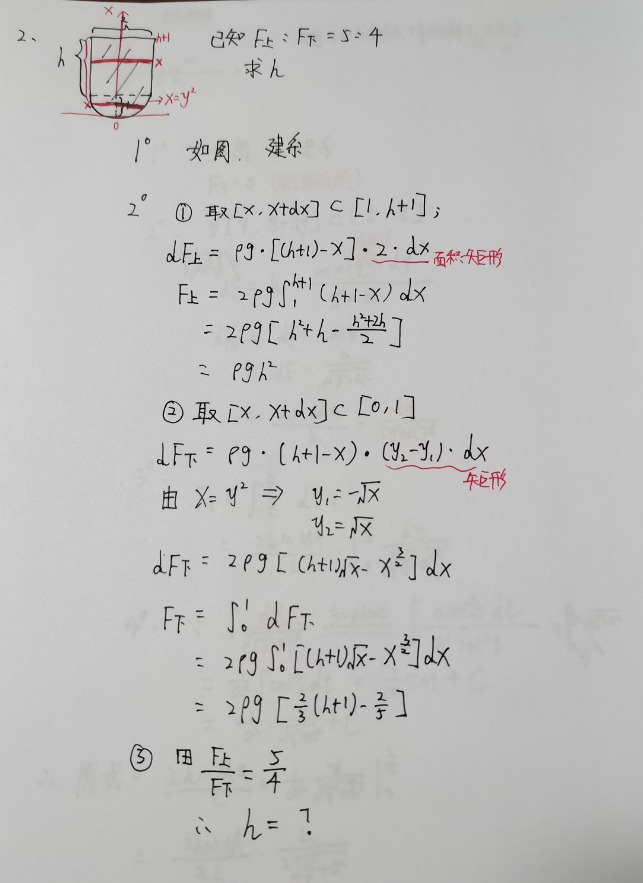 2、 已知 F上:F下=5:4
求h
x
h
h+1
x
x
→x=y²
0
1° 如图.建系
2° ① 取[x, x+dx]⊂[1, h+1];
dF上 = ρg·[(h+1)-x]·2·dx 面积:矩形
F上 = 2ρg∫₁ʰ⁺¹(h+1-x)dx
= 2ρg[h²+h-\frac{h²+2h}{2}]
= ρgh²
② 取[x, x+dx]⊂[0,1]
dF下 = ρg·(h+1-x)·(y₂-y₁)·dx
矩形
由 x=y² ⇒ y₁=-√x
y₂=√x
dF下 = 2ρg[(h+1)√x-x^{\frac{3}{2}}]dx
F下 = ∫₀¹ dF下
= 2ρg∫₀¹[(h+1)√x-x^{\frac{3}{2}}]dx
= 2ρg[\frac{2}{3}(h+1)-\frac{2}{5}]
③ 由 \frac{F上}{F下}=\frac{5}{4}
∴ h=?